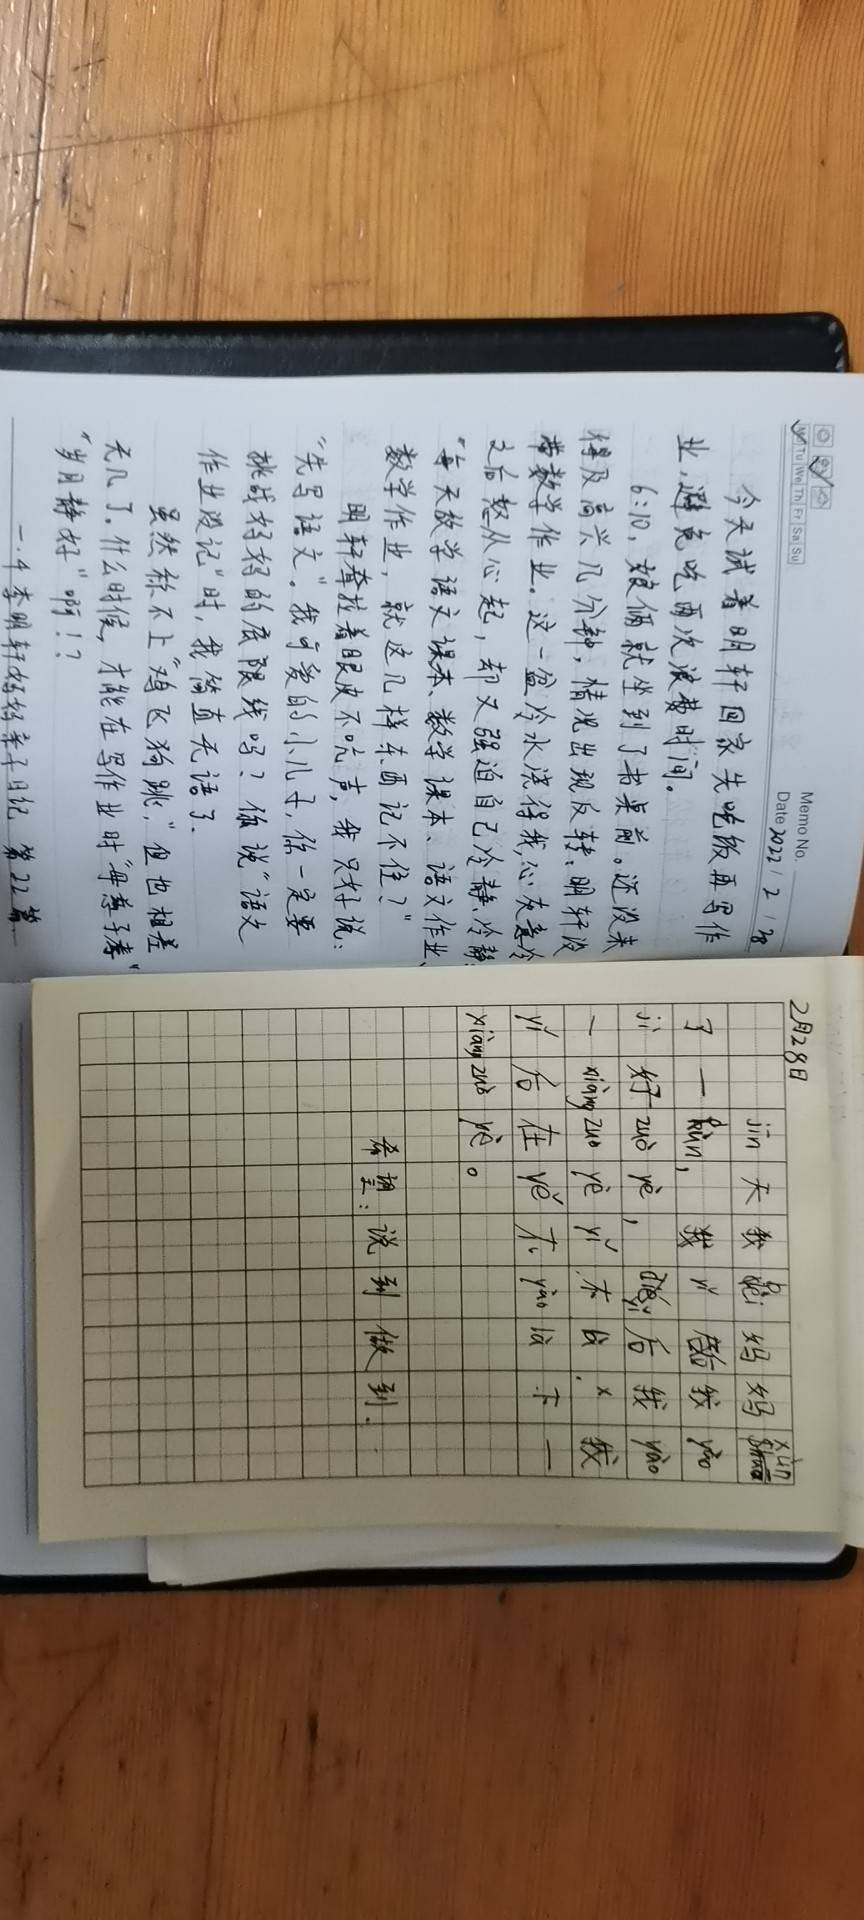 Memo No.
Mo Tu We Th Fr Sa Su
Date 2022 / 2 / 28
今天试着明轩回家先吃饭再写作
业，避免吃两次浪费时间。
6:10，娘俩就坐到了书桌前。还没来
得及高兴几分钟，情况出现反转，明轩没
带数学作业。这一盆冷水浇得我心灰意冷
之后怒从心起，却又强迫自己冷静、冷静：
"每天数学语文课本、数学课本、语文作业、
数学作业，就这几样东西记不住？"
明轩耷拉着眼皮不吭声，我只好说：
"先写语文。"我可爱的小儿子，你一定要
挑战妈妈的底限线吗？他说"语文
作业没记"时，我简直无语了.
虽然称不上"鸡飞狗跳，"但也相差
无几了。什么时候，才能在写作业时"母慈子孝"
"岁月静好"啊！？
一.4 李明轩妈妈亲子日记 第22篇
2月28日
jīn天我bèi妈妈xùn
了一dùn，我yǐ后我yào
jì好zuò yè，yǐ后我yào
一xiàng zuò yè yǐ不là. x 我
yǐ后在yě不yào là下一
xiàng zuò yè。
希望：说到做到.